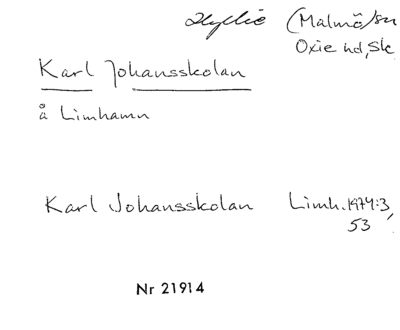 Hyllie (Malmö)sn
Oxie hd, Sk
Karl Johansskolan
å Limhamn
Karl Johansskolan Limh. 1974:3,
53
Nr 21914